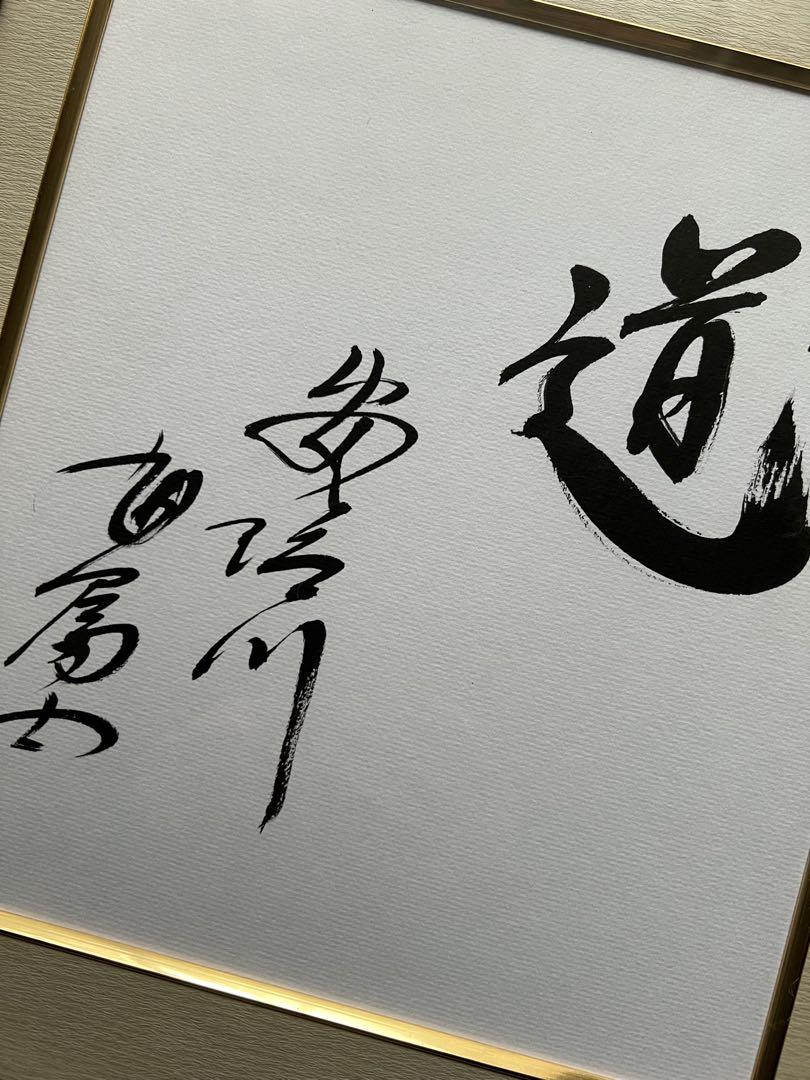 道
安治川
旭富士